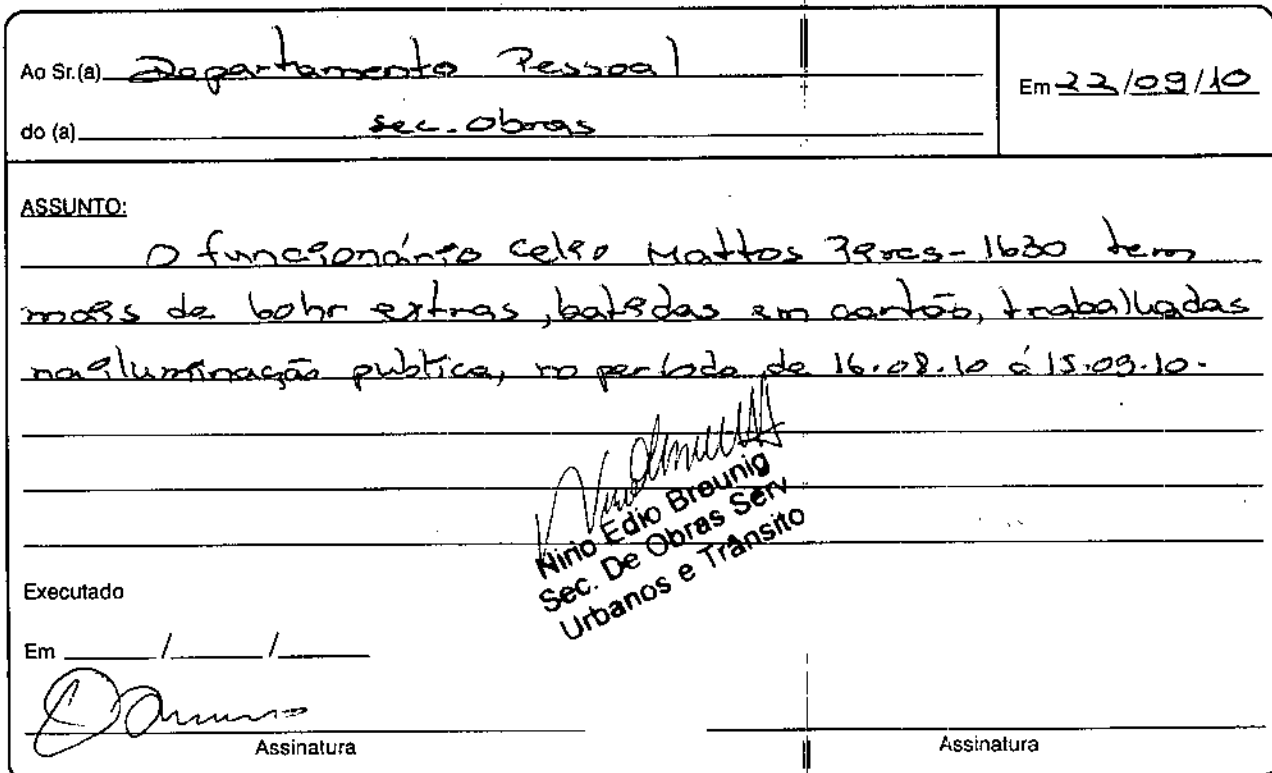 Ao Sr.(a) Departamento Pessoal
Em 22/09/10
do (a) sec. obras
ASSUNTO:
O funcionário Celio Mattos Peres - 1630 tem
mais de 60hr extras, batidas em cartão, trabalhadas
na iluminação publica, no periodo de 16.08.10 á 15.09.10.
Nirio Edio Breunig
Sec. De Obras Serv
Urbanos e Trânsito
Executado
Em ____/____/____
Assinatura
Assinatura